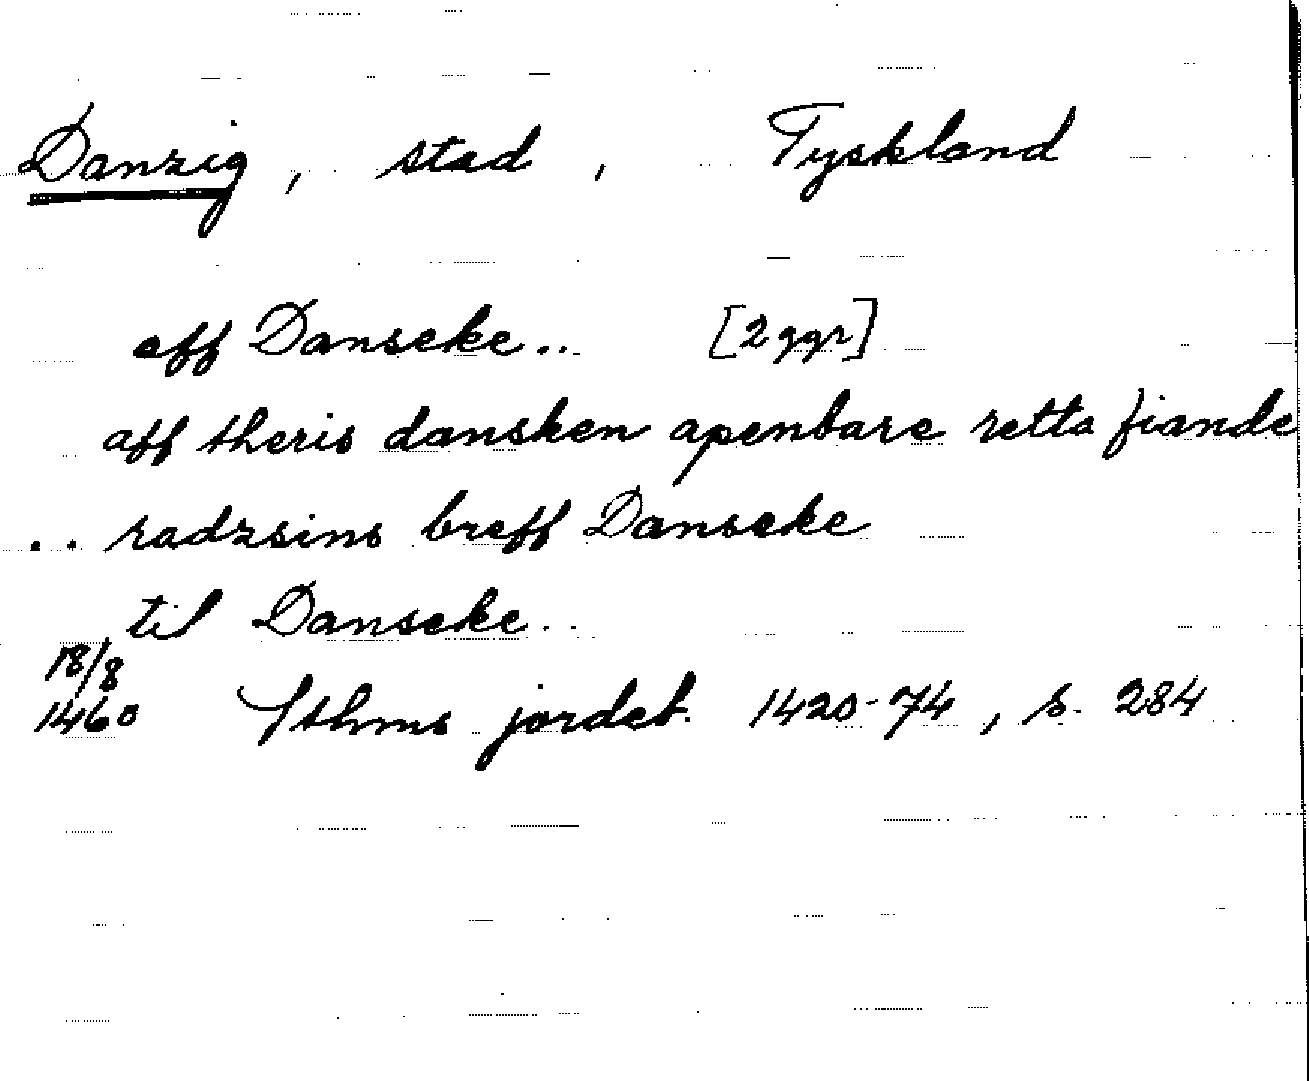 Danzig, stad, Tyskland
aff Danseke.. [2 ggr]
aff theris dansken apenbare retta fiande
.. radzsins breff Danseke
til Danseke..
18/8
1460 Sthms jordeb. 1420-74, s. 284